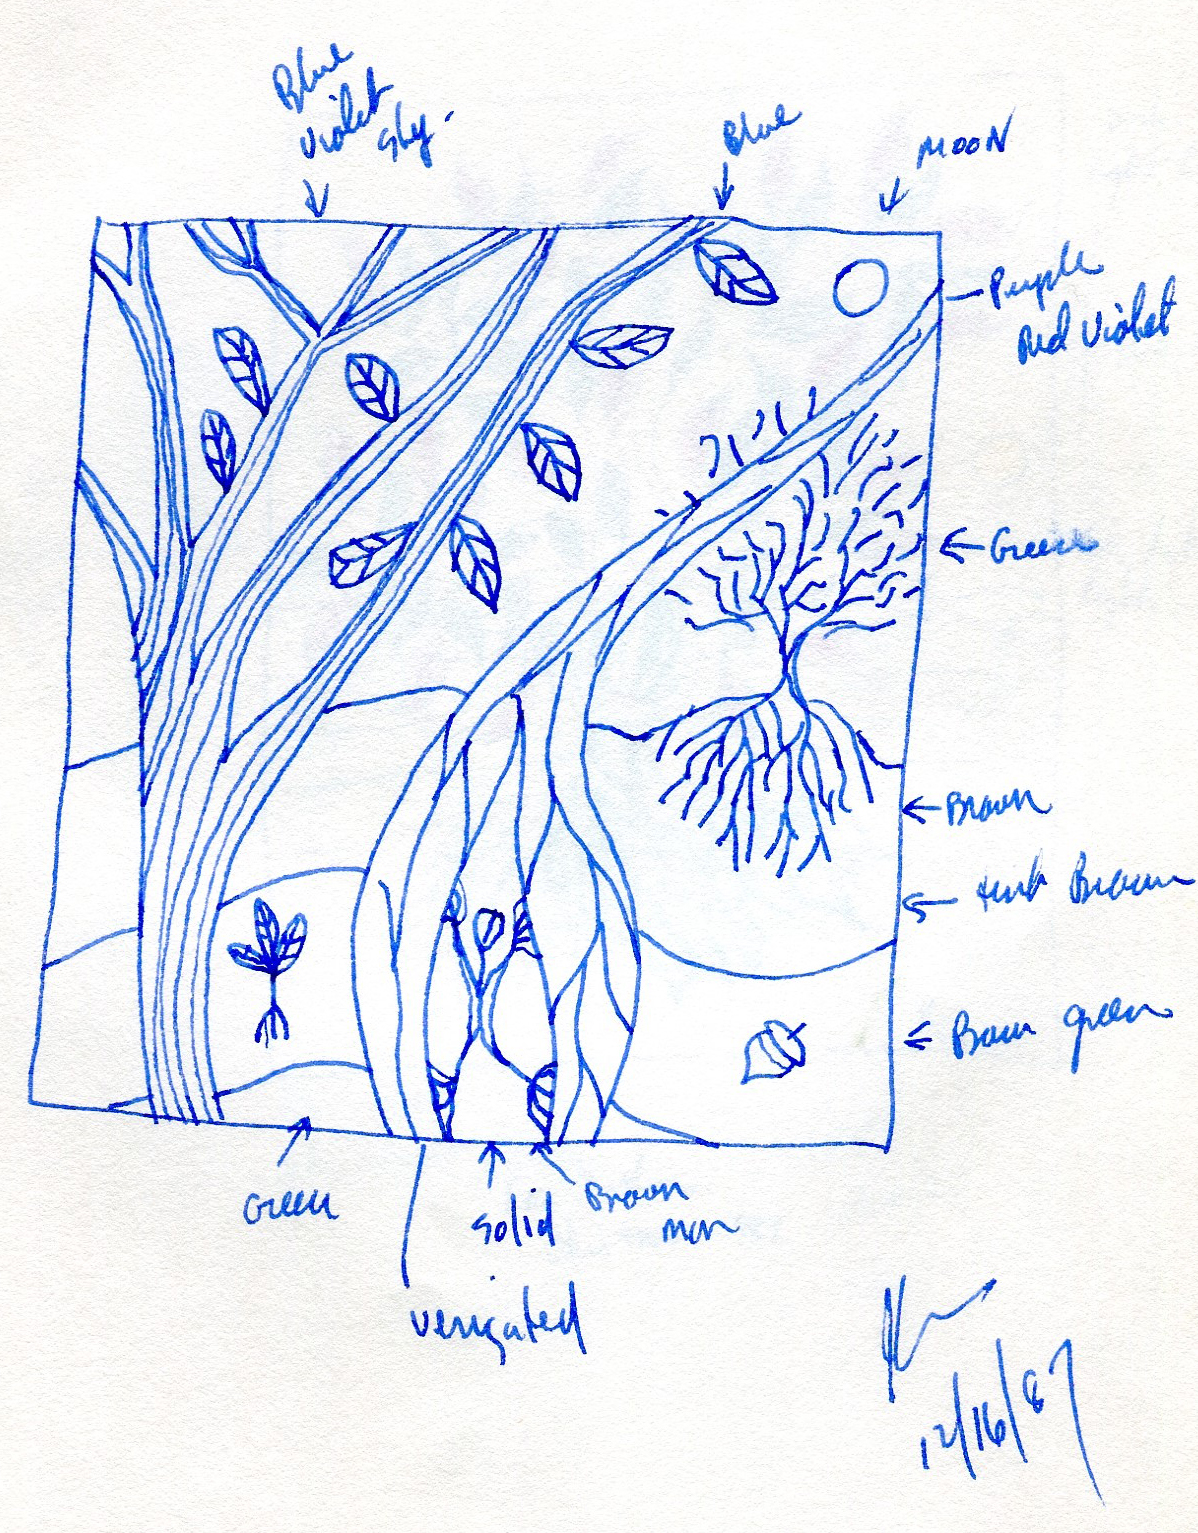 Blue
violet
sky.
Blue
MOON
Purple
Red Violet
Green
Brown
Brown
Brown green
Green
solid
Brown
verigated
12/16/87